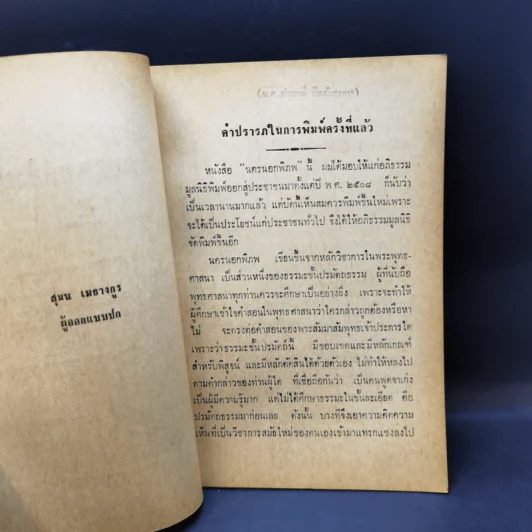 สุมน เมธางกูร
ผู้ออกแบบปก
คำปรารภในการพิมพ์ครั้งที่แล้ว
หนังสือ "นครนอกพิภพ" นี้ ผมได้มอบให้แก่อภิธรรม
มูลนิธิพิมพ์ออกสู่ประชาชนมาตั้งแต่ปี พ.ศ. ๒๕๐๘ ก็นับว่า
เป็นเวลานานมากแล้ว แต่บัดนี้เห็นสมควรพิมพ์ขึ้นใหม่เพราะ
จะได้เป็นประโยชน์แด่ประชาชนทั่วไป จึงได้ให้อภิธรรมมูลนิธิ
จัดพิมพ์ขึ้นอีก
นครนอกพิภพ เขียนขึ้นจากหลักวิชาการในพระพุทธ-
ศาสนา เป็นส่วนหนึ่งของธรรมะชั้นปรมัตถธรรม ผู้ที่นับถือ
พุทธศาสนาทุกท่านควรจะศึกษาเป็นอย่างยิ่ง เพราะจะทำให้
ผู้ศึกษาเข้าใจคำสอนในพุทธศาสนาว่าใครกล่าวถูกต้องหรือหา
ไม่ จะตรงต่อคำสอนของพระสัมมาสัมพุทธเจ้าประการใด
เพราะว่าธรรมะชั้นปรมัตถ์นี้ มีขอบเขตและมีหลักเกณฑ์
สำหรับพิสูจน์ และมีหลักตัดสินได้ด้วยตัวเอง ไม่ทำให้หลงไป
ตามคำกล่าวของท่านผู้ใด ที่เชื่อถือกันว่า เป็นคนพูดจาเก่ง
เป็นผู้มีความรู้มาก แต่ไม่ได้ศึกษาธรรมะในขั้นละเอียด คือ
ปรมัตถธรรมมาก่อนเลย ดังนั้น บางทีจึงเอาความคิดความ
เห็นที่เป็นวิชาการสมัยใหม่ของตนเองเข้ามาแทรกแซงลงไป